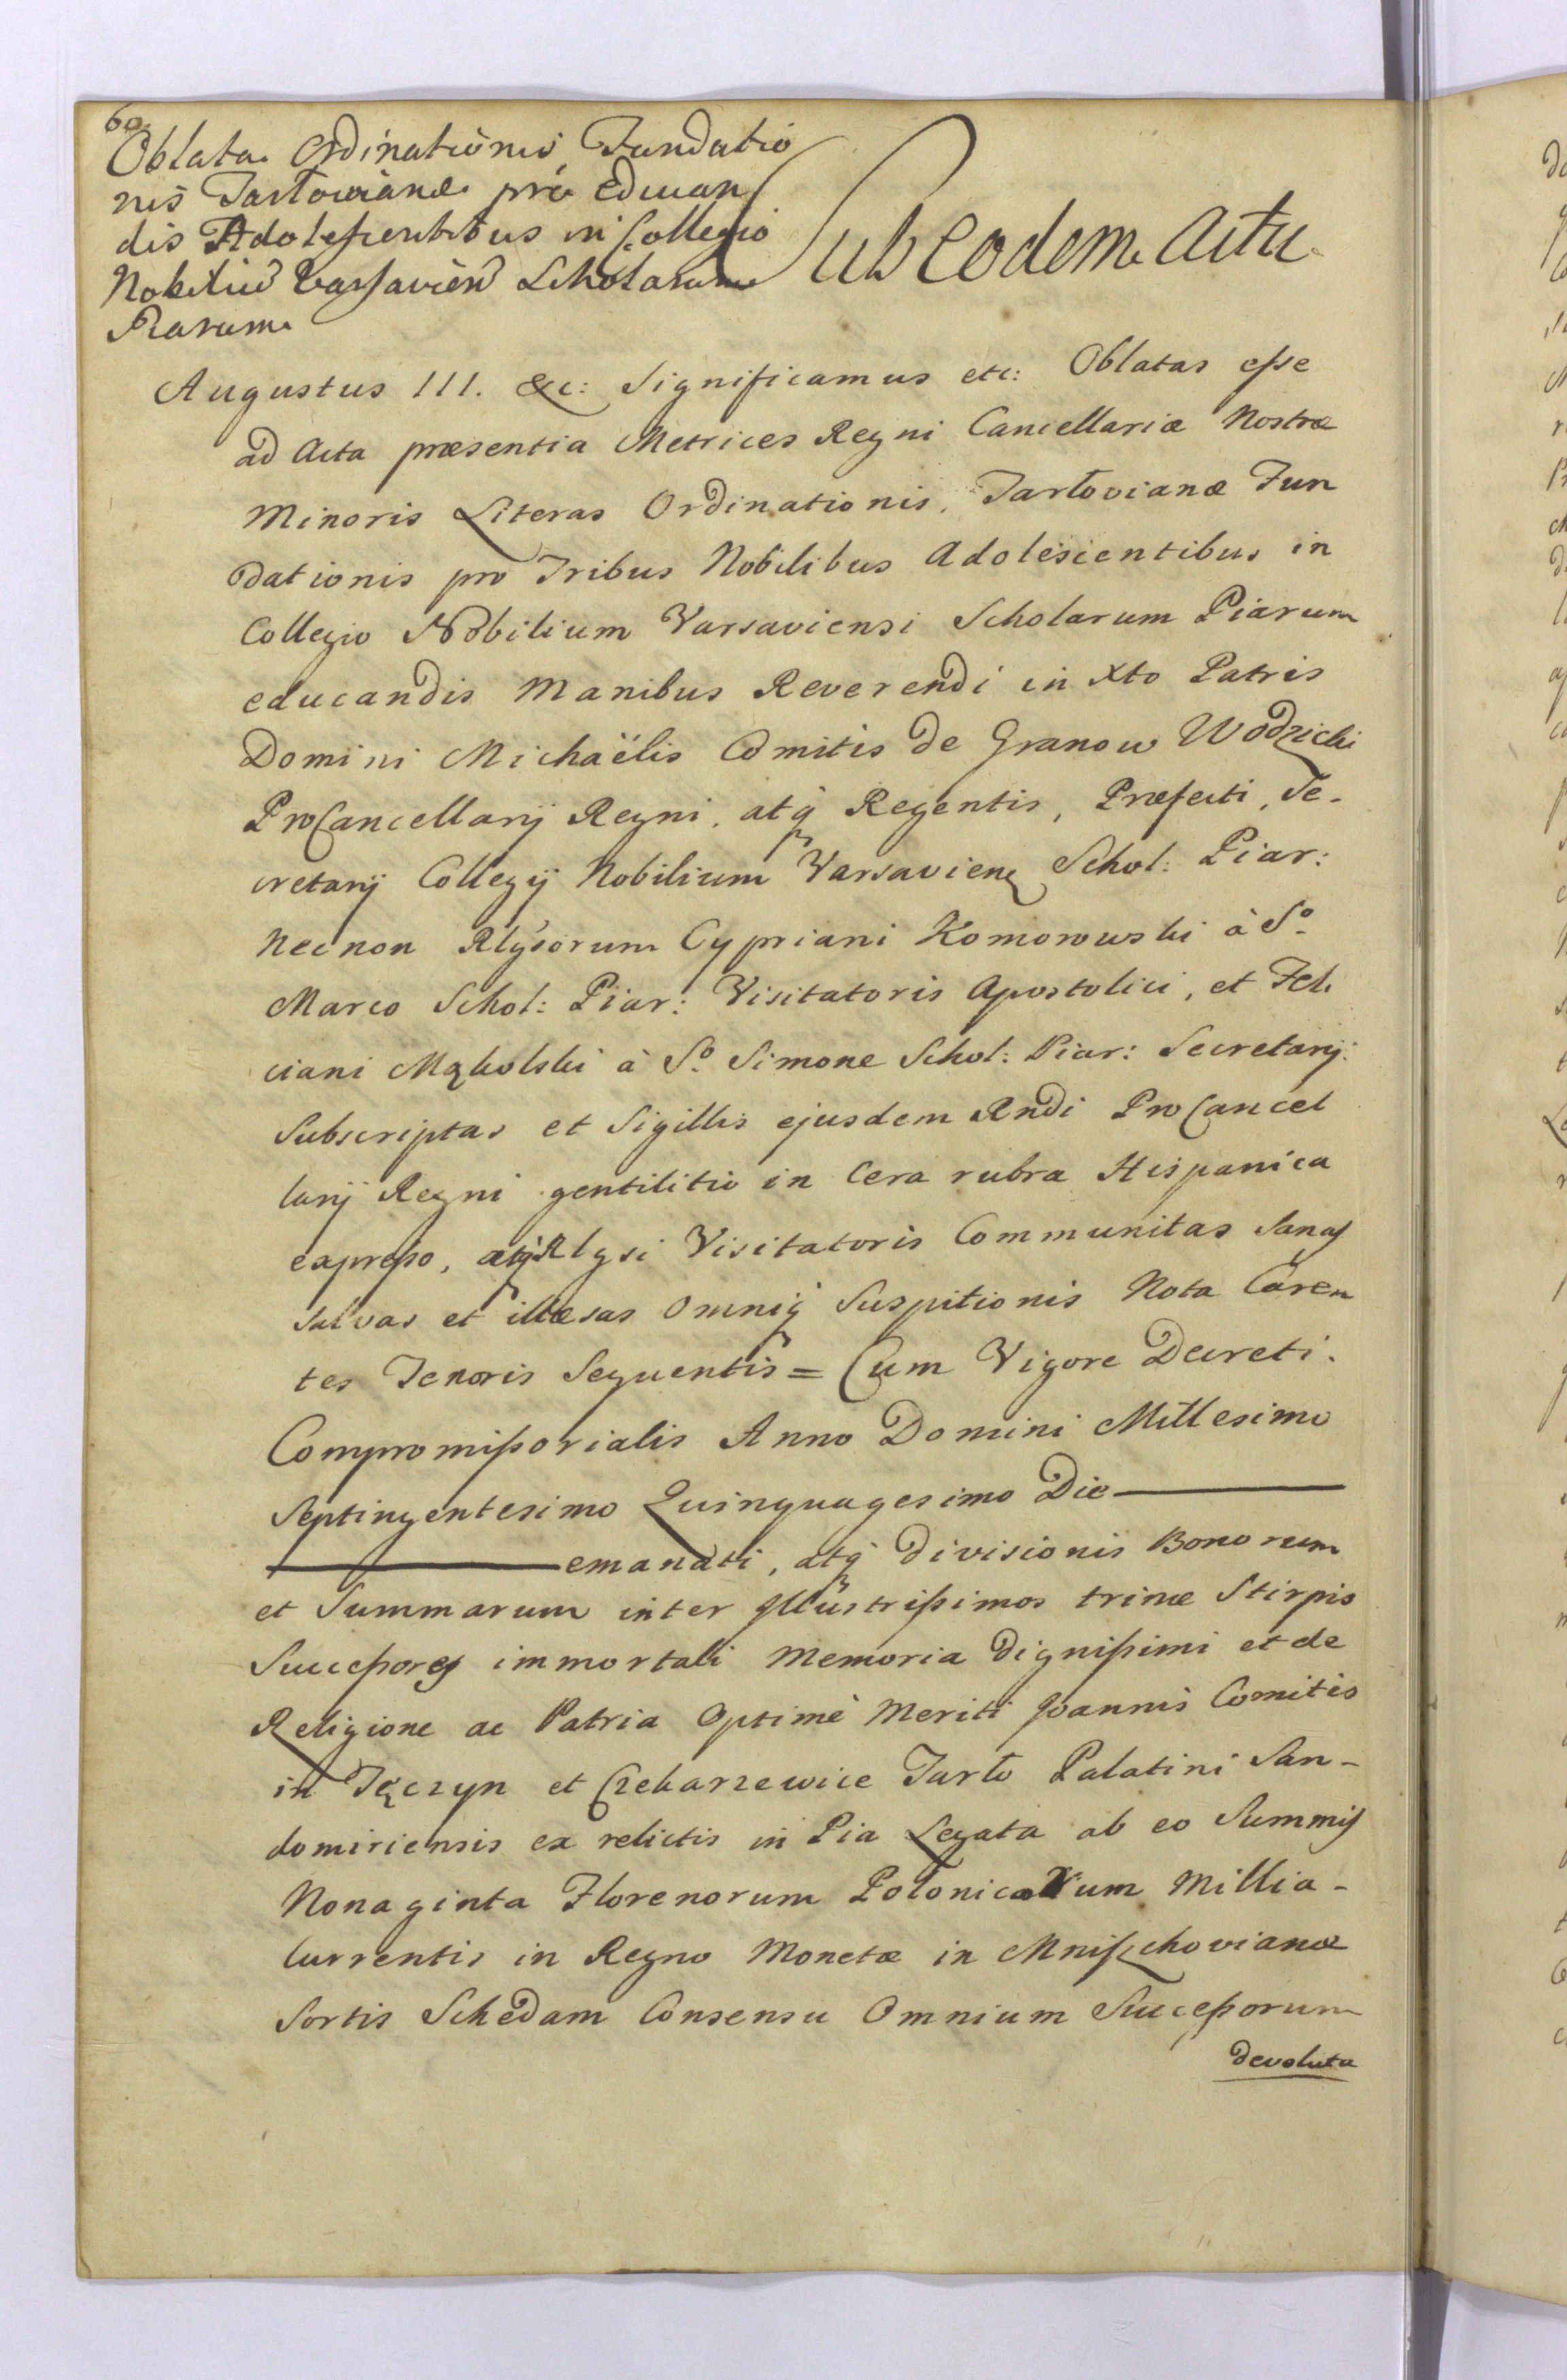 60.
Oblata Ordinationis Fundatio
nis Tarłowianæ pro Educan
dis Adolescentibus in Collegio
Nobilium Varsavien Scholarum
Piarum
Sub eodem Actu
Augustus III. &c: Significamus etc: Oblatas esse
ad Acta præsentia Metrices Regni Cancellariæ Nostræ
Minoris Literas Ordinationis, Tarłovianæ Fun
dationis pro Tribus Nobilibus Adolescentibus in
Collegio Nobilium Varsaviensi Scholarum Piarum
educandis Manibus Reverendi in Xto Patris
Domini Michaëlis Comitis de Granow Wodzicki
ProCancellarij Regni, atq Regentis, Præfecti, Se-
cretarij Collegij Nobilium Varsavien Schol: Piar:
Necnon Rlgsorum Cypriani Komorowski à So
Marco Schol: Piar: Visitatoris Apostolici, et Feli
ciani Mąkolski à So Simone Schol: Piar: Secretarij
Subscriptas et Sigillis ejusdem Rndi ProCancel
larij Regni gentilitio in Cera rubra Hispanica
expresso, atq Rlgsi Visitatoris Communitas Sanas
Salvas et illæsas Omniq Suspitionis Nota Caren
tes Tenoris Sequentis = Cum Vigore Decreti
Compromissorialis Anno Domini Millesimo
Septingentesimo Quinquagesimo Die
emanati, atq divisionis Bonorum
et Summarum inter Illustrissimos trinæ Stirpis
Successores immortali Memoria Dignissimi et de
Religione ac Patria Optimè Meriti Joannis Comitis
in Tęczyn et Czekarzewice Tarło Palatini San-
domiriensis ex relictis in Pia Legata ab eo Summis
Nonaginta Florenorum Polonicarum Millia-
Currentis in Regno Monetæ in Mniszchovianæ
Sortis Schedam Consensu Omnium Successorum
devoluta